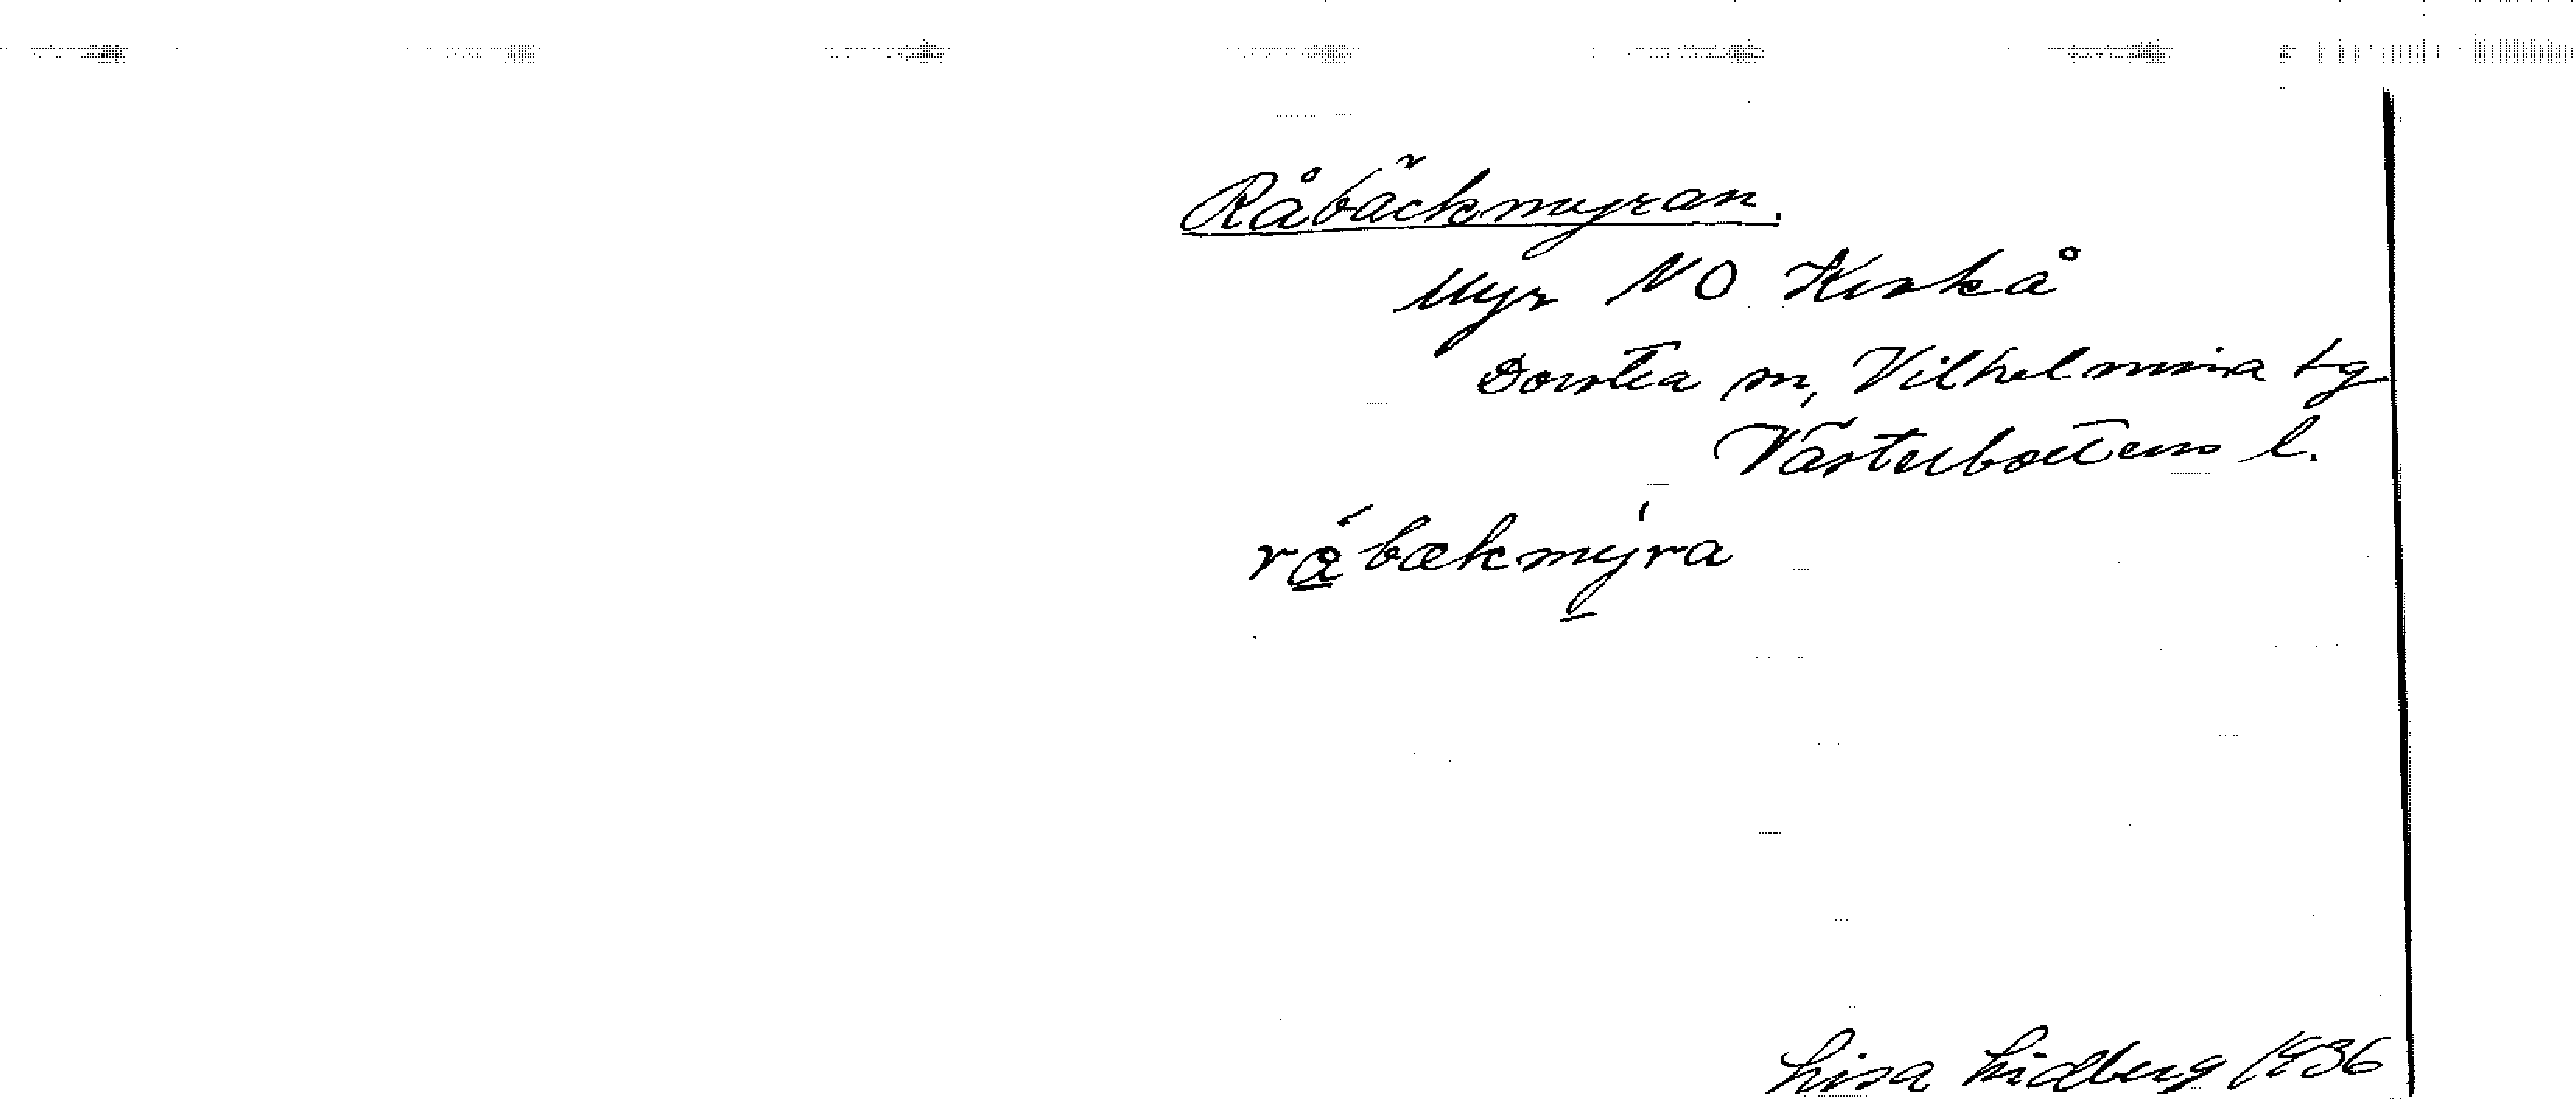 Råbäckmyran.
Myr NO Kerkå
Dorotea sn, Vilhelmina tg
Västerbottens l.
rǻbækmy̍ra
Lisa Lidberg 1936